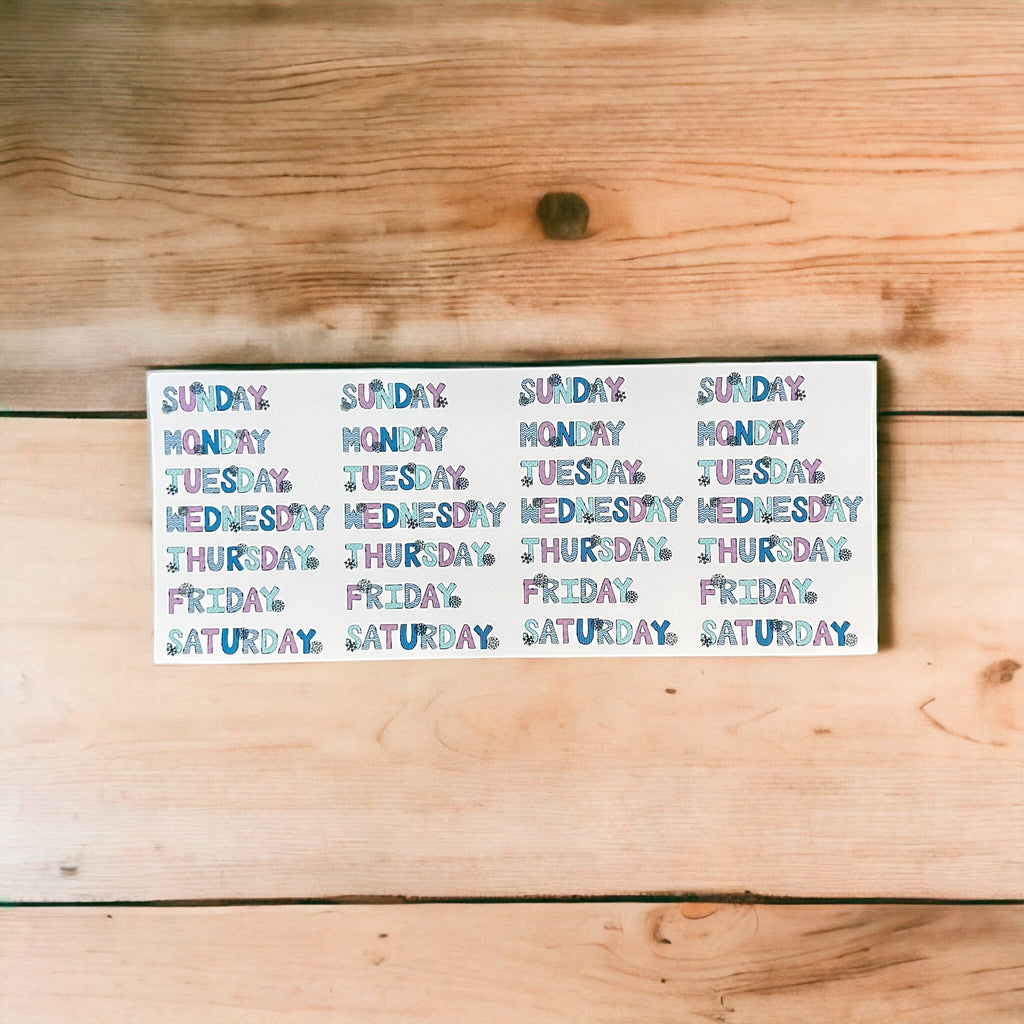 SUNDAY SUNDAY SUNDAY SUNDAY
MONDAY MONDAY MONDAY MONDAY
TUESDAY TUESDAY TUESDAY TUESDAY
WEDNESDAY WEDNESDAY WEDNESDAY WEDNESDAY
THURSDAY THURSDAY THURSDAY THURSDAY
FRIDAY FRIDAY FRIDAY FRIDAY
SATURDAY SATURDAY SATURDAY SATURDAY